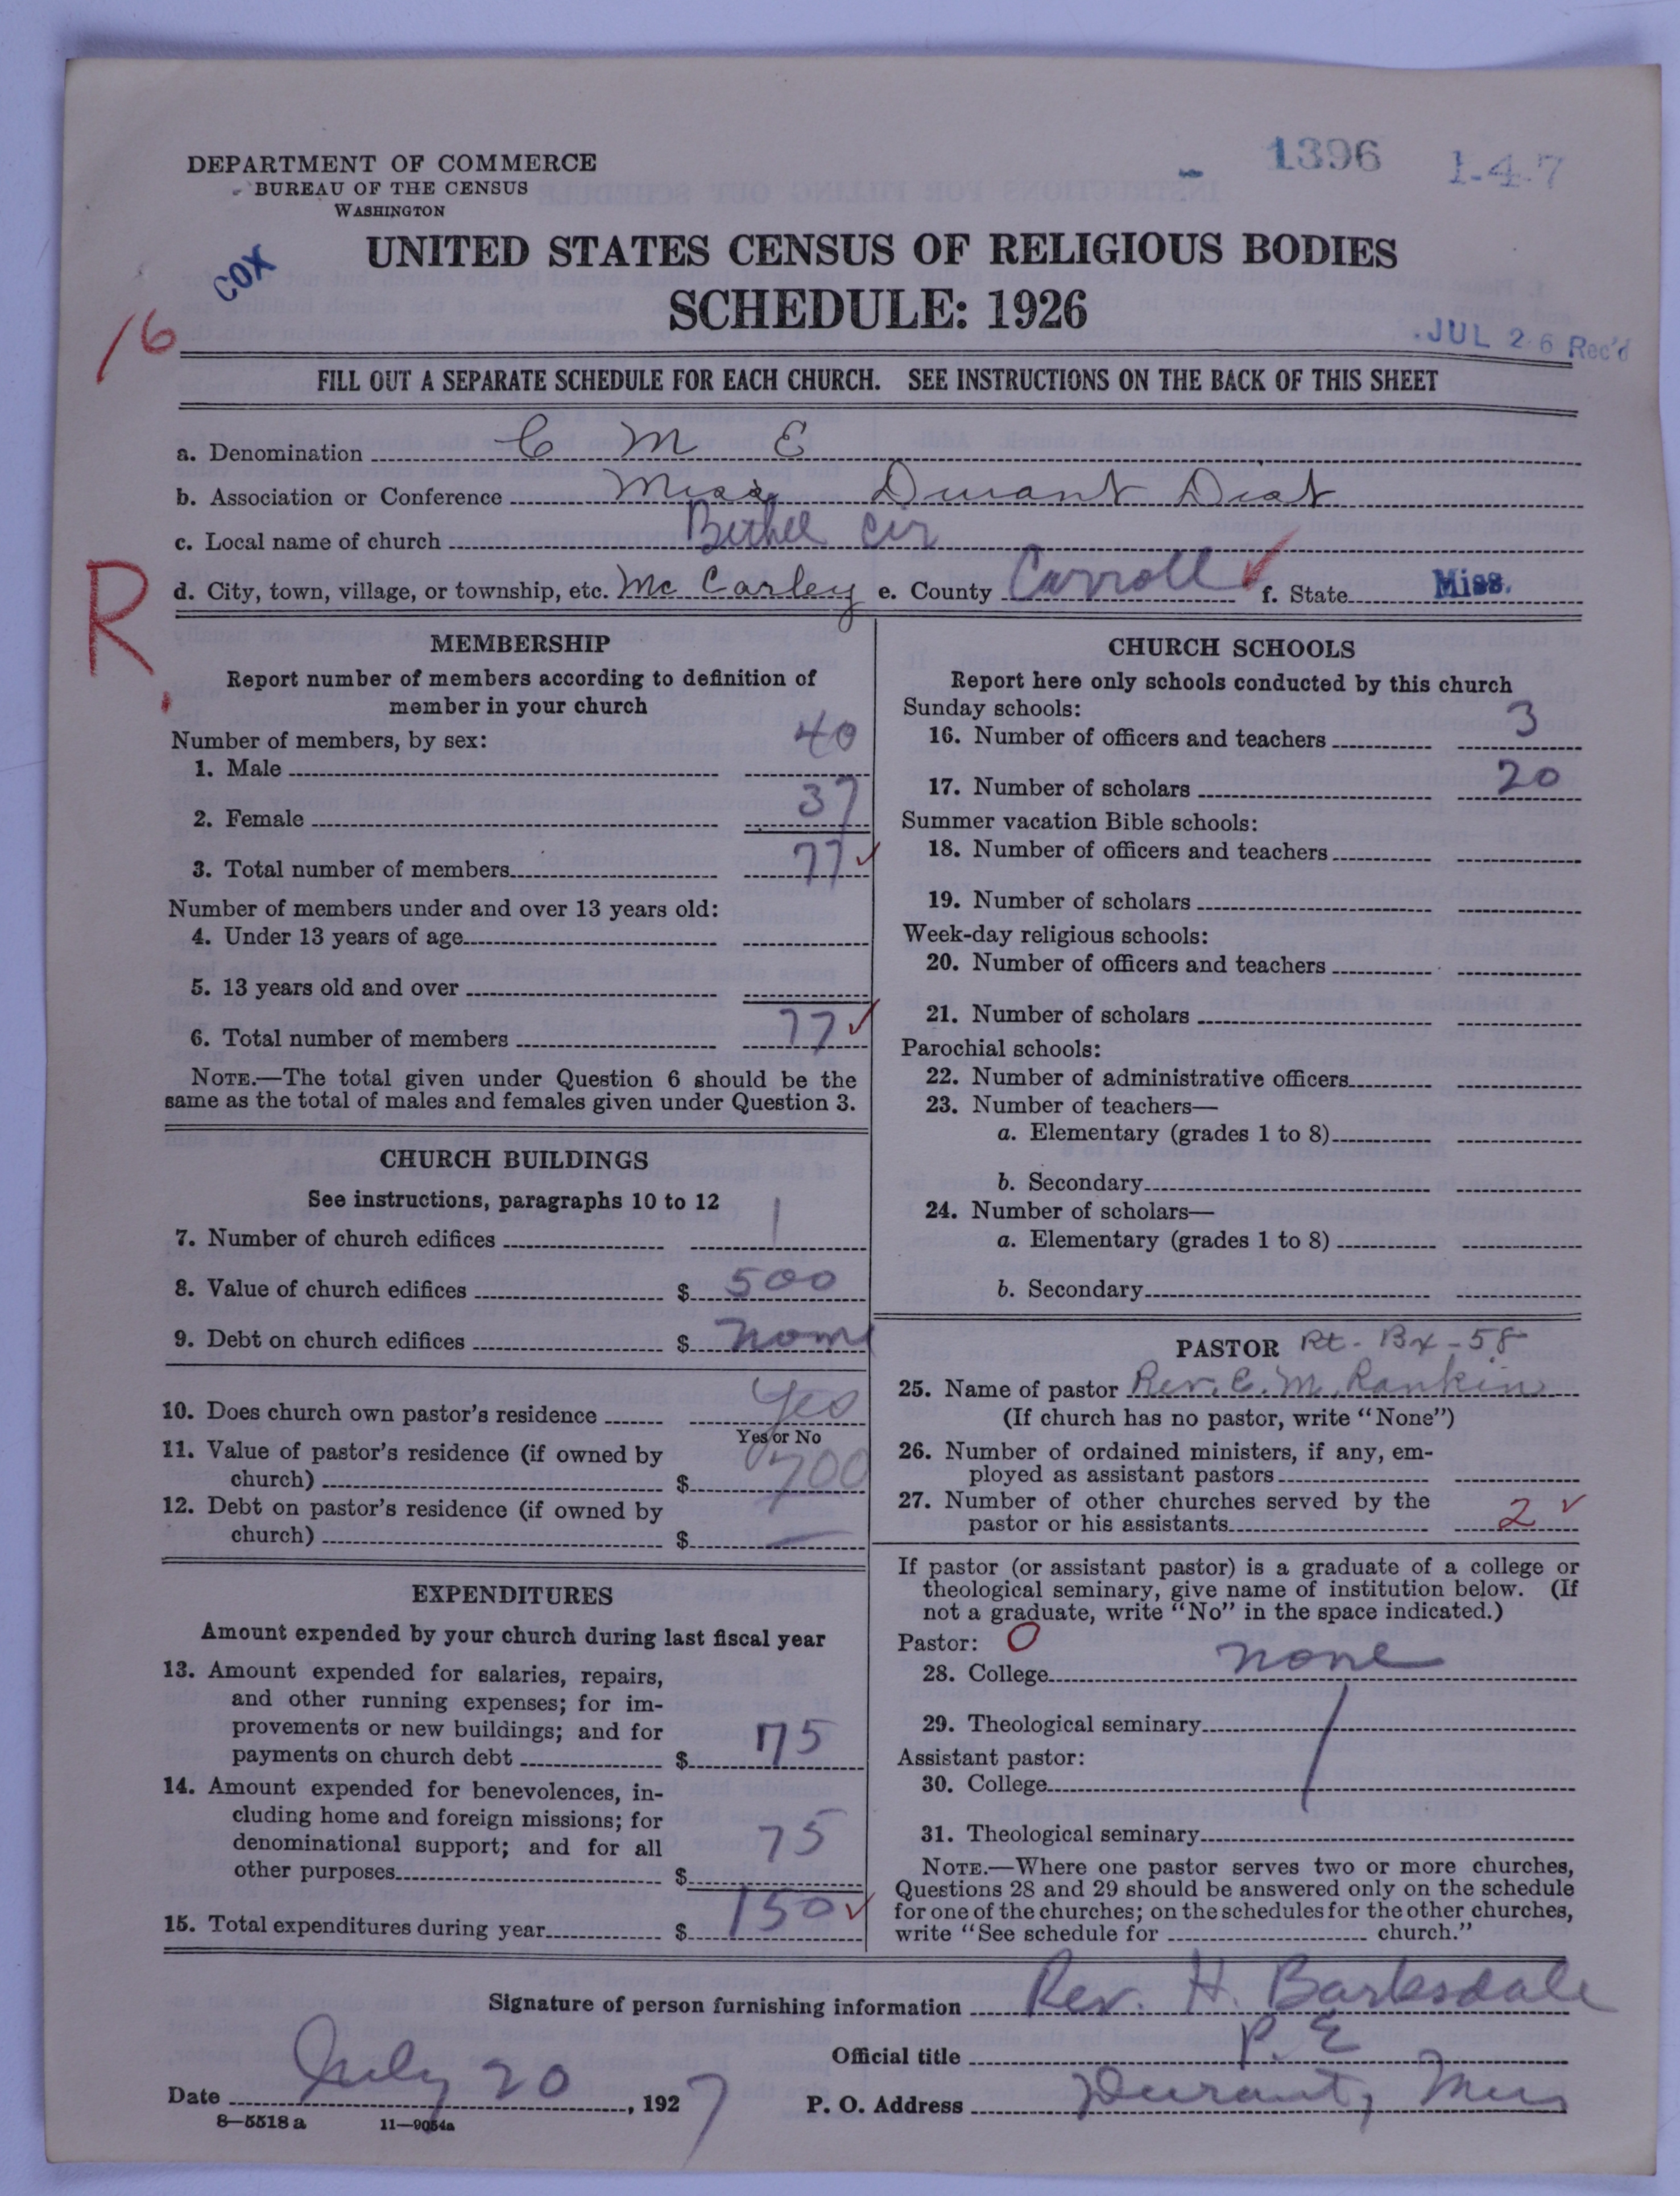 1396 1-4-7
DEPARTMENT OF COMMERCE
BUREAU OF THE CENSUS
WASHINGTON
COX
UNITED STATES CENSUS OF RELIGIOUS BODIES
SCHEDULE: 1926
16
JUL 26 Rec'd
FILL OUT A SEPARATE SCHEDULE FOR EACH CHURCH. SEE INSTRUCTIONS ON THE BACK OF THIS SHEET
a. Denomination C M E
b. Association or Conference Miss Durant Dist
c. Local name of church Bethel Cir
R.
d. City, town, village, or township, etc. Mc Carley e. County Carroll f. State Miss.
MEMBERSHIP
Report number of members according to definition of
member in your church
Number of members, by sex:
1. Male 40
2. Female 37
3. Total number of members 77
Number of members under and over 13 years old:
4. Under 13 years of age
5. 13 years old and over
6. Total number of members 77
NOTE.—The total given under Question 6 should be the
same as the total of males and females given under Question 3.
CHURCH BUILDINGS
See instructions, paragraphs 10 to 12
7. Number of church edifices 1
8. Value of church edifices $ 500
9. Debt on church edifices $ none
10. Does church own pastor's residence Yes
Yes or No
11. Value of pastor's residence (if owned by
church) $ 700
12. Debt on pastor's residence (if owned by
church) $ —
EXPENDITURES
Amount expended by your church during last fiscal year
13. Amount expended for salaries, repairs,
and other running expenses; for im-
provements or new buildings; and for
payments on church debt $ 75
14. Amount expended for benevolences, in-
cluding home and foreign missions; for
denominational support; and for all
other purposes $ 75
15. Total expenditures during year $ 150
CHURCH SCHOOLS
Report here only schools conducted by this church
Sunday schools:
16. Number of officers and teachers 3
17. Number of scholars 20
Summer vacation Bible schools:
18. Number of officers and teachers
19. Number of scholars
Week-day religious schools:
20. Number of officers and teachers
21. Number of scholars
Parochial schools:
22. Number of administrative officers
23. Number of teachers—
a. Elementary (grades 1 to 8)
b. Secondary
24. Number of scholars—
a. Elementary (grades 1 to 8)
b. Secondary
PASTOR Rt - Bx - 58
25. Name of pastor Rev. C. M. Rankin
(If church has no pastor, write "None")
26. Number of ordained ministers, if any, em-
ployed as assistant pastors
27. Number of other churches served by the
pastor or his assistants 2
If pastor (or assistant pastor) is a graduate of a college or
theological seminary, give name of institution below. (If
not a graduate, write "No" in the space indicated.)
Pastor: O
28. College none
29. Theological seminary
Assistant pastor:
30. College
31. Theological seminary
NOTE.—Where one pastor serves two or more churches,
Questions 28 and 29 should be answered only on the schedule
for one of the churches; on the schedules for the other churches,
write "See schedule for church."
Signature of person furnishing information Rev. H. Barksdale
Official title P. E
Date July 20, 1927 P. O. Address Durant, Miss
8—5518 a 11—9054a